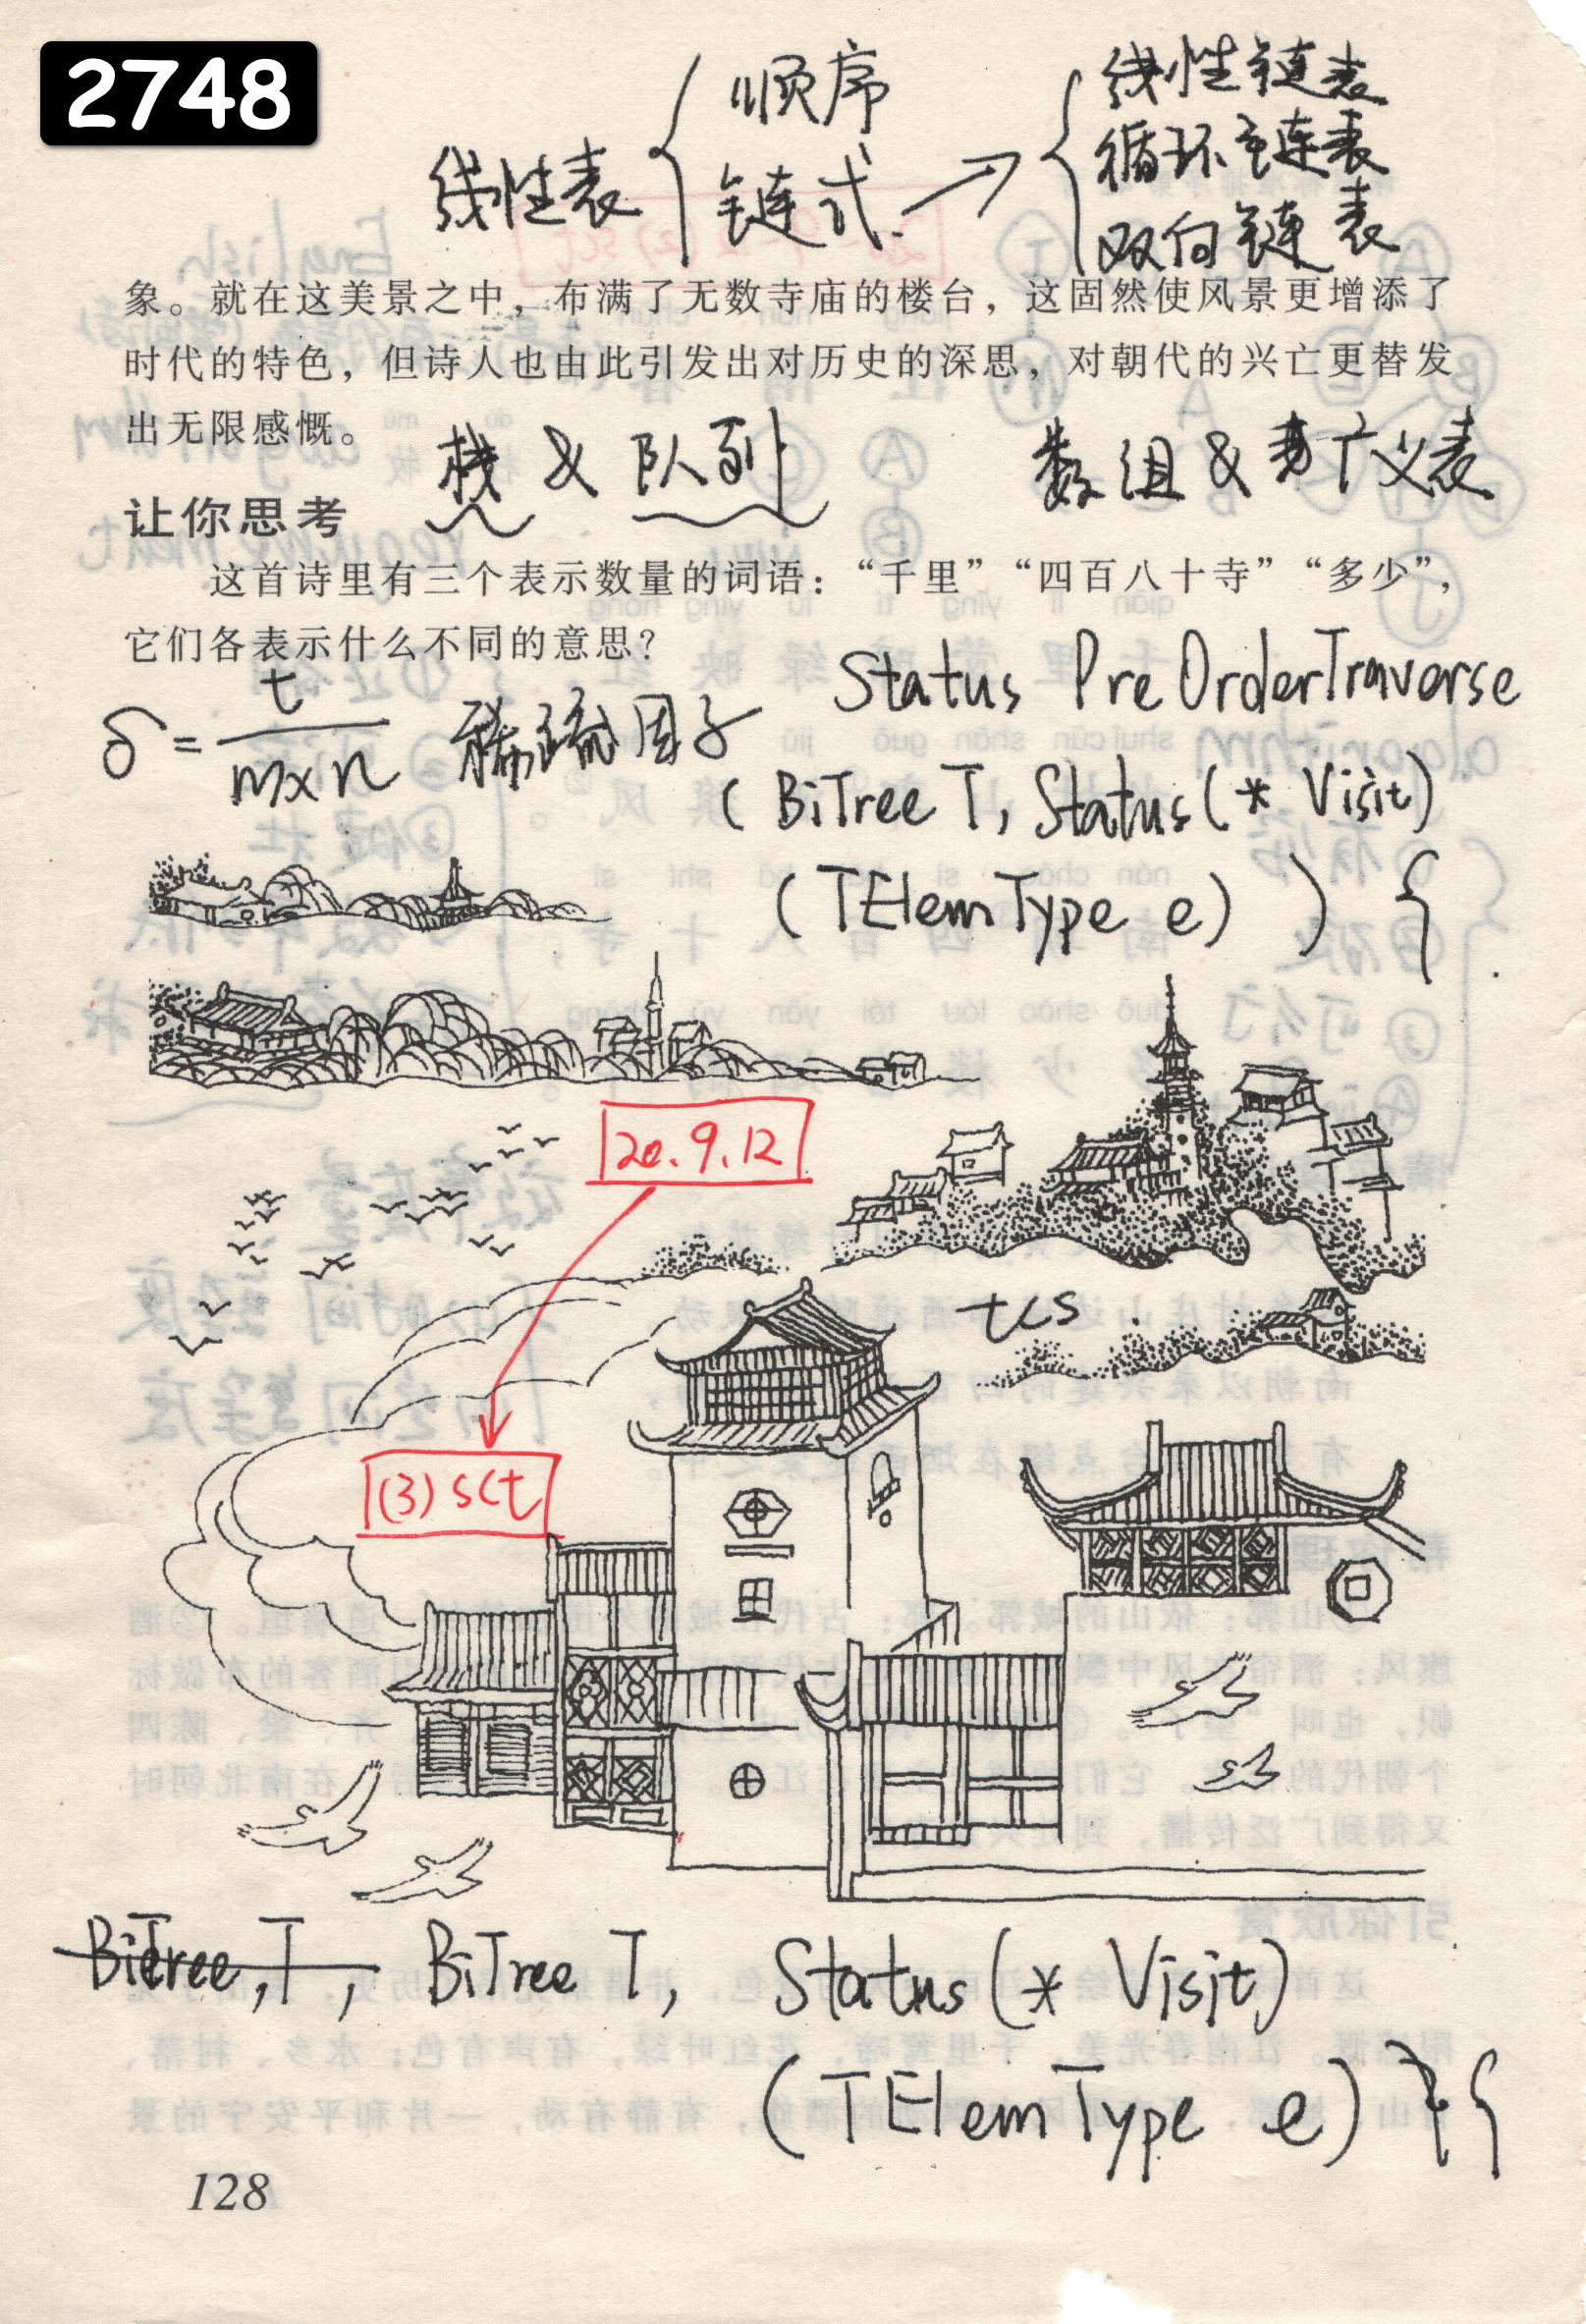 2748
线性表 { 顺序 链式 → { 线性链表 循环链表 双向链表
象。就在这美景之中，布满了无数寺庙的楼台，这固然使风景更增添了
时代的特色，但诗人也由此引发出对历史的深思，对朝代的兴亡更替发
出无限感慨。
栈 & 队列
数组 & 广义表
让你思考
这首诗里有三个表示数量的词语：“千里”“四百八十寺”“多少”，
它们各表示什么不同的意思？
δ = t / m×n 稀疏因子
Status PreOrderTraverse
( BiTree T, Status (* Visit)
(TElemType e) ) {
20.9.12
tcs
(3) sct
BiTree, T, BiTree T, Status (* Visit)
(TElemType e) ) {
128